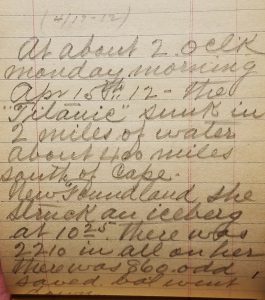 (4/17-12)
At about 2. Oclk
monday morning
Apr 15th. 12 - the
"Titanic" sunk in
2 miles of water
about 400 miles
south of Cape.
New Foundland she
struck an iceberg
at 10 25. there was
2210 in all on her
there was 860 odd
saved, bal went